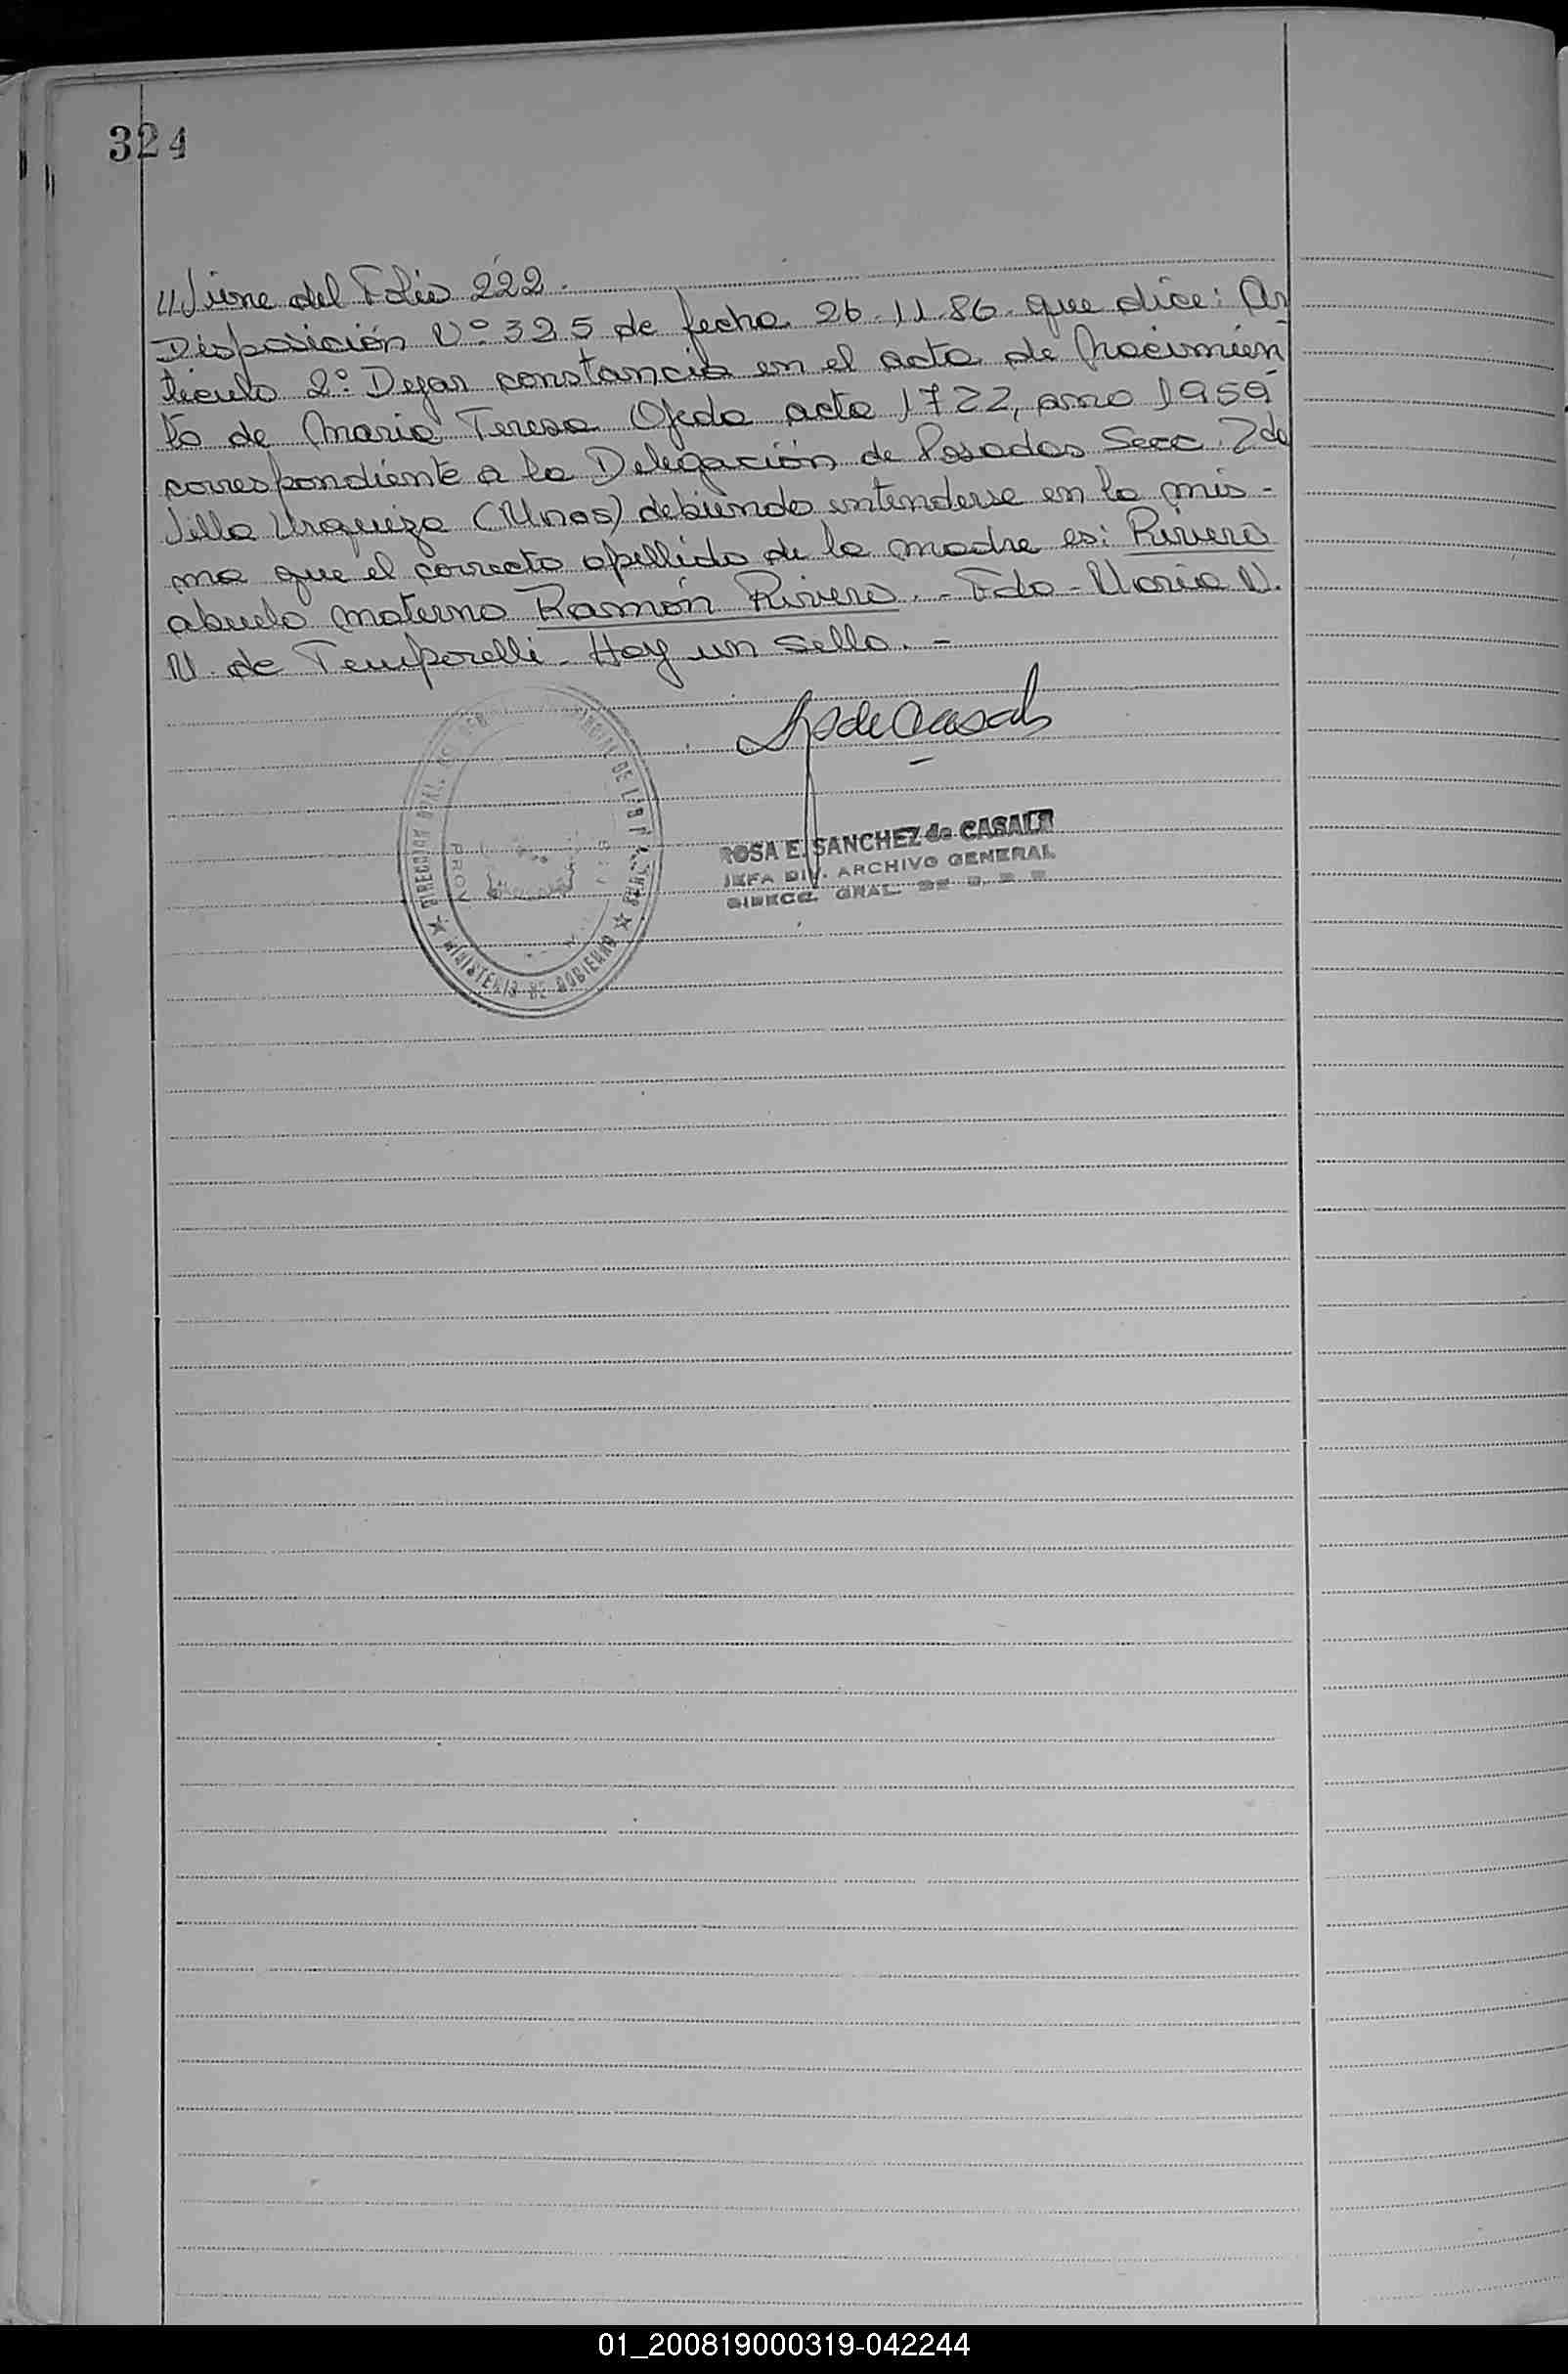 324
//Viene del Folio 222.
Disposición Nº 325 de fecha 26-11-86 que dice: Ar
tículo 2º: Dejar constancia en el acta de Nacimien
to de Maria Teresa Ojeda acta 1722, año 1959
correspondiente a la Delegación de Posadas Secc. 2da
Villa Urquiza (Mnes) debiendo entenderse en la mis-
ma que el correcto apellido de la madre es: Rivero
abuelo materno Ramón Rivero. - Fdo - Maria N.
N. de Temporelli - Hay un sello. -
ROSA E. SANCHEZ de CASALS
JEFA DIV. ARCHIVO GENERAL
DIRECC. GRAL. DE
DIRECCION GRAL. DE LAS PERSONAS
PROV
MINISTERIO DE GOBIERNO
01_200819000319-042244